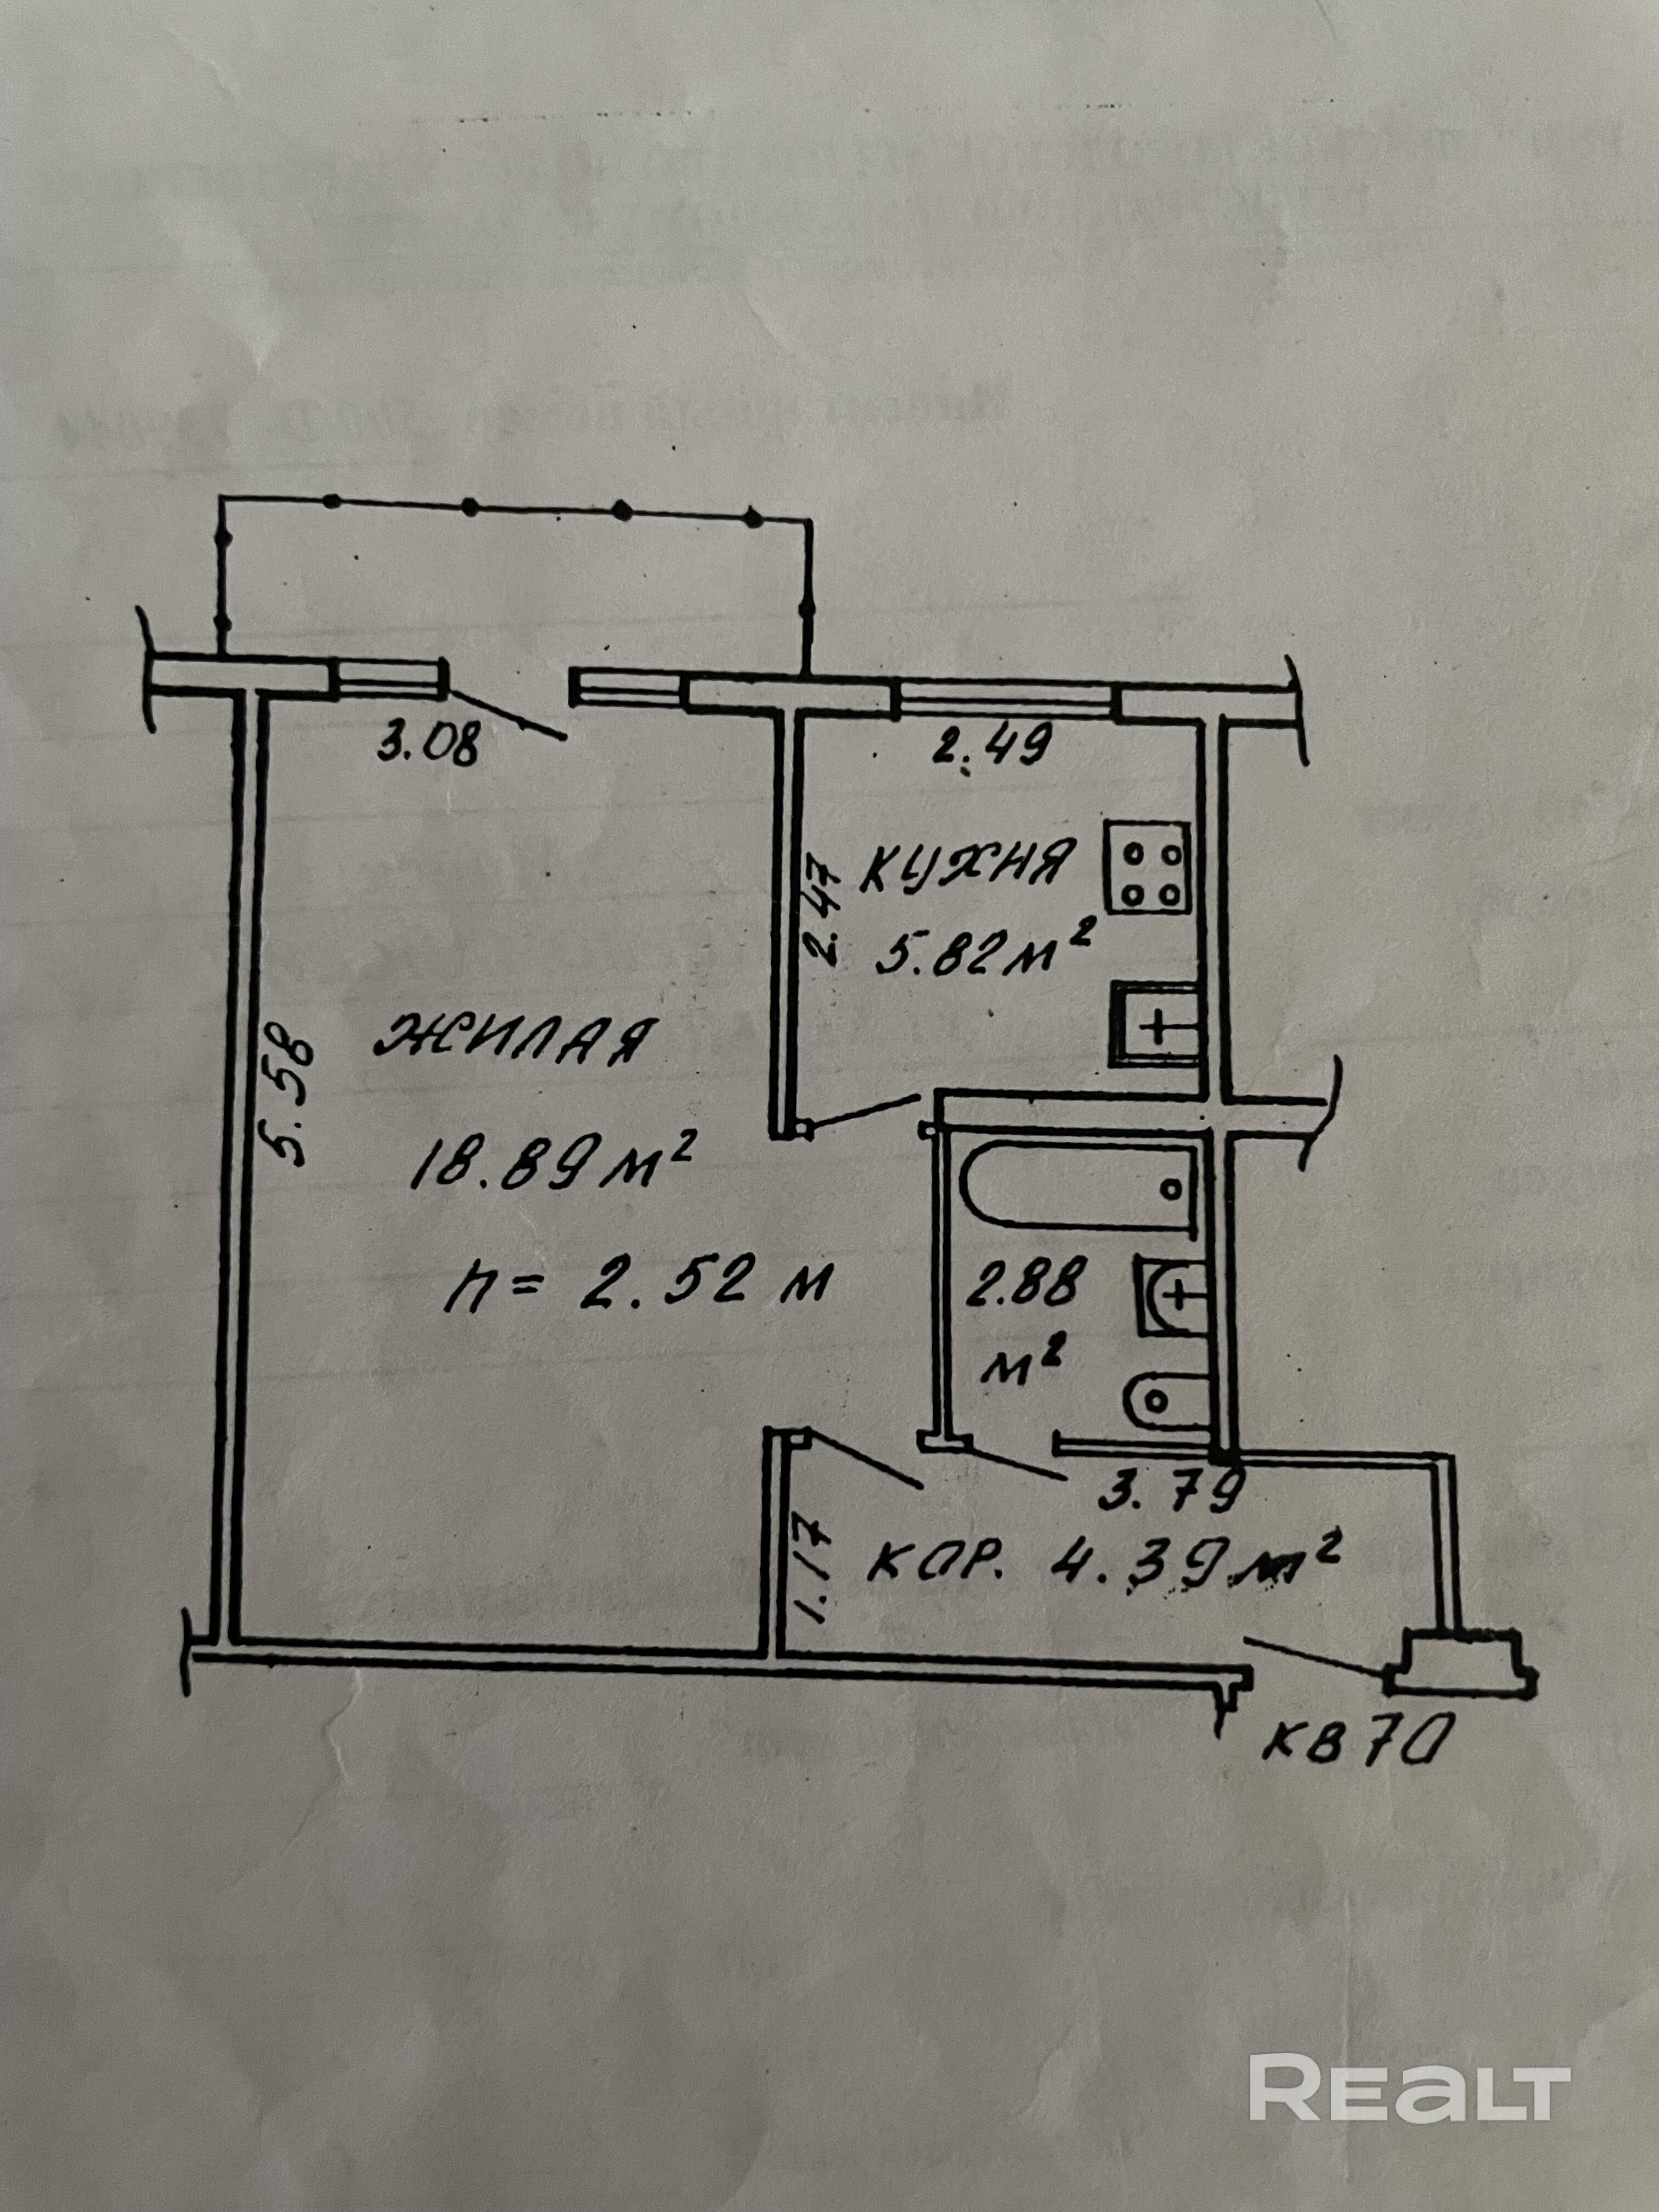 3.08
2.49
2.47
КУХНЯ
5.82 м²
5.58
ЖИЛАЯ
18.89 м²
h = 2.52 м
2.88
м²
3.79
1.17
КОР. 4.39 м²
КВ 70
REALT